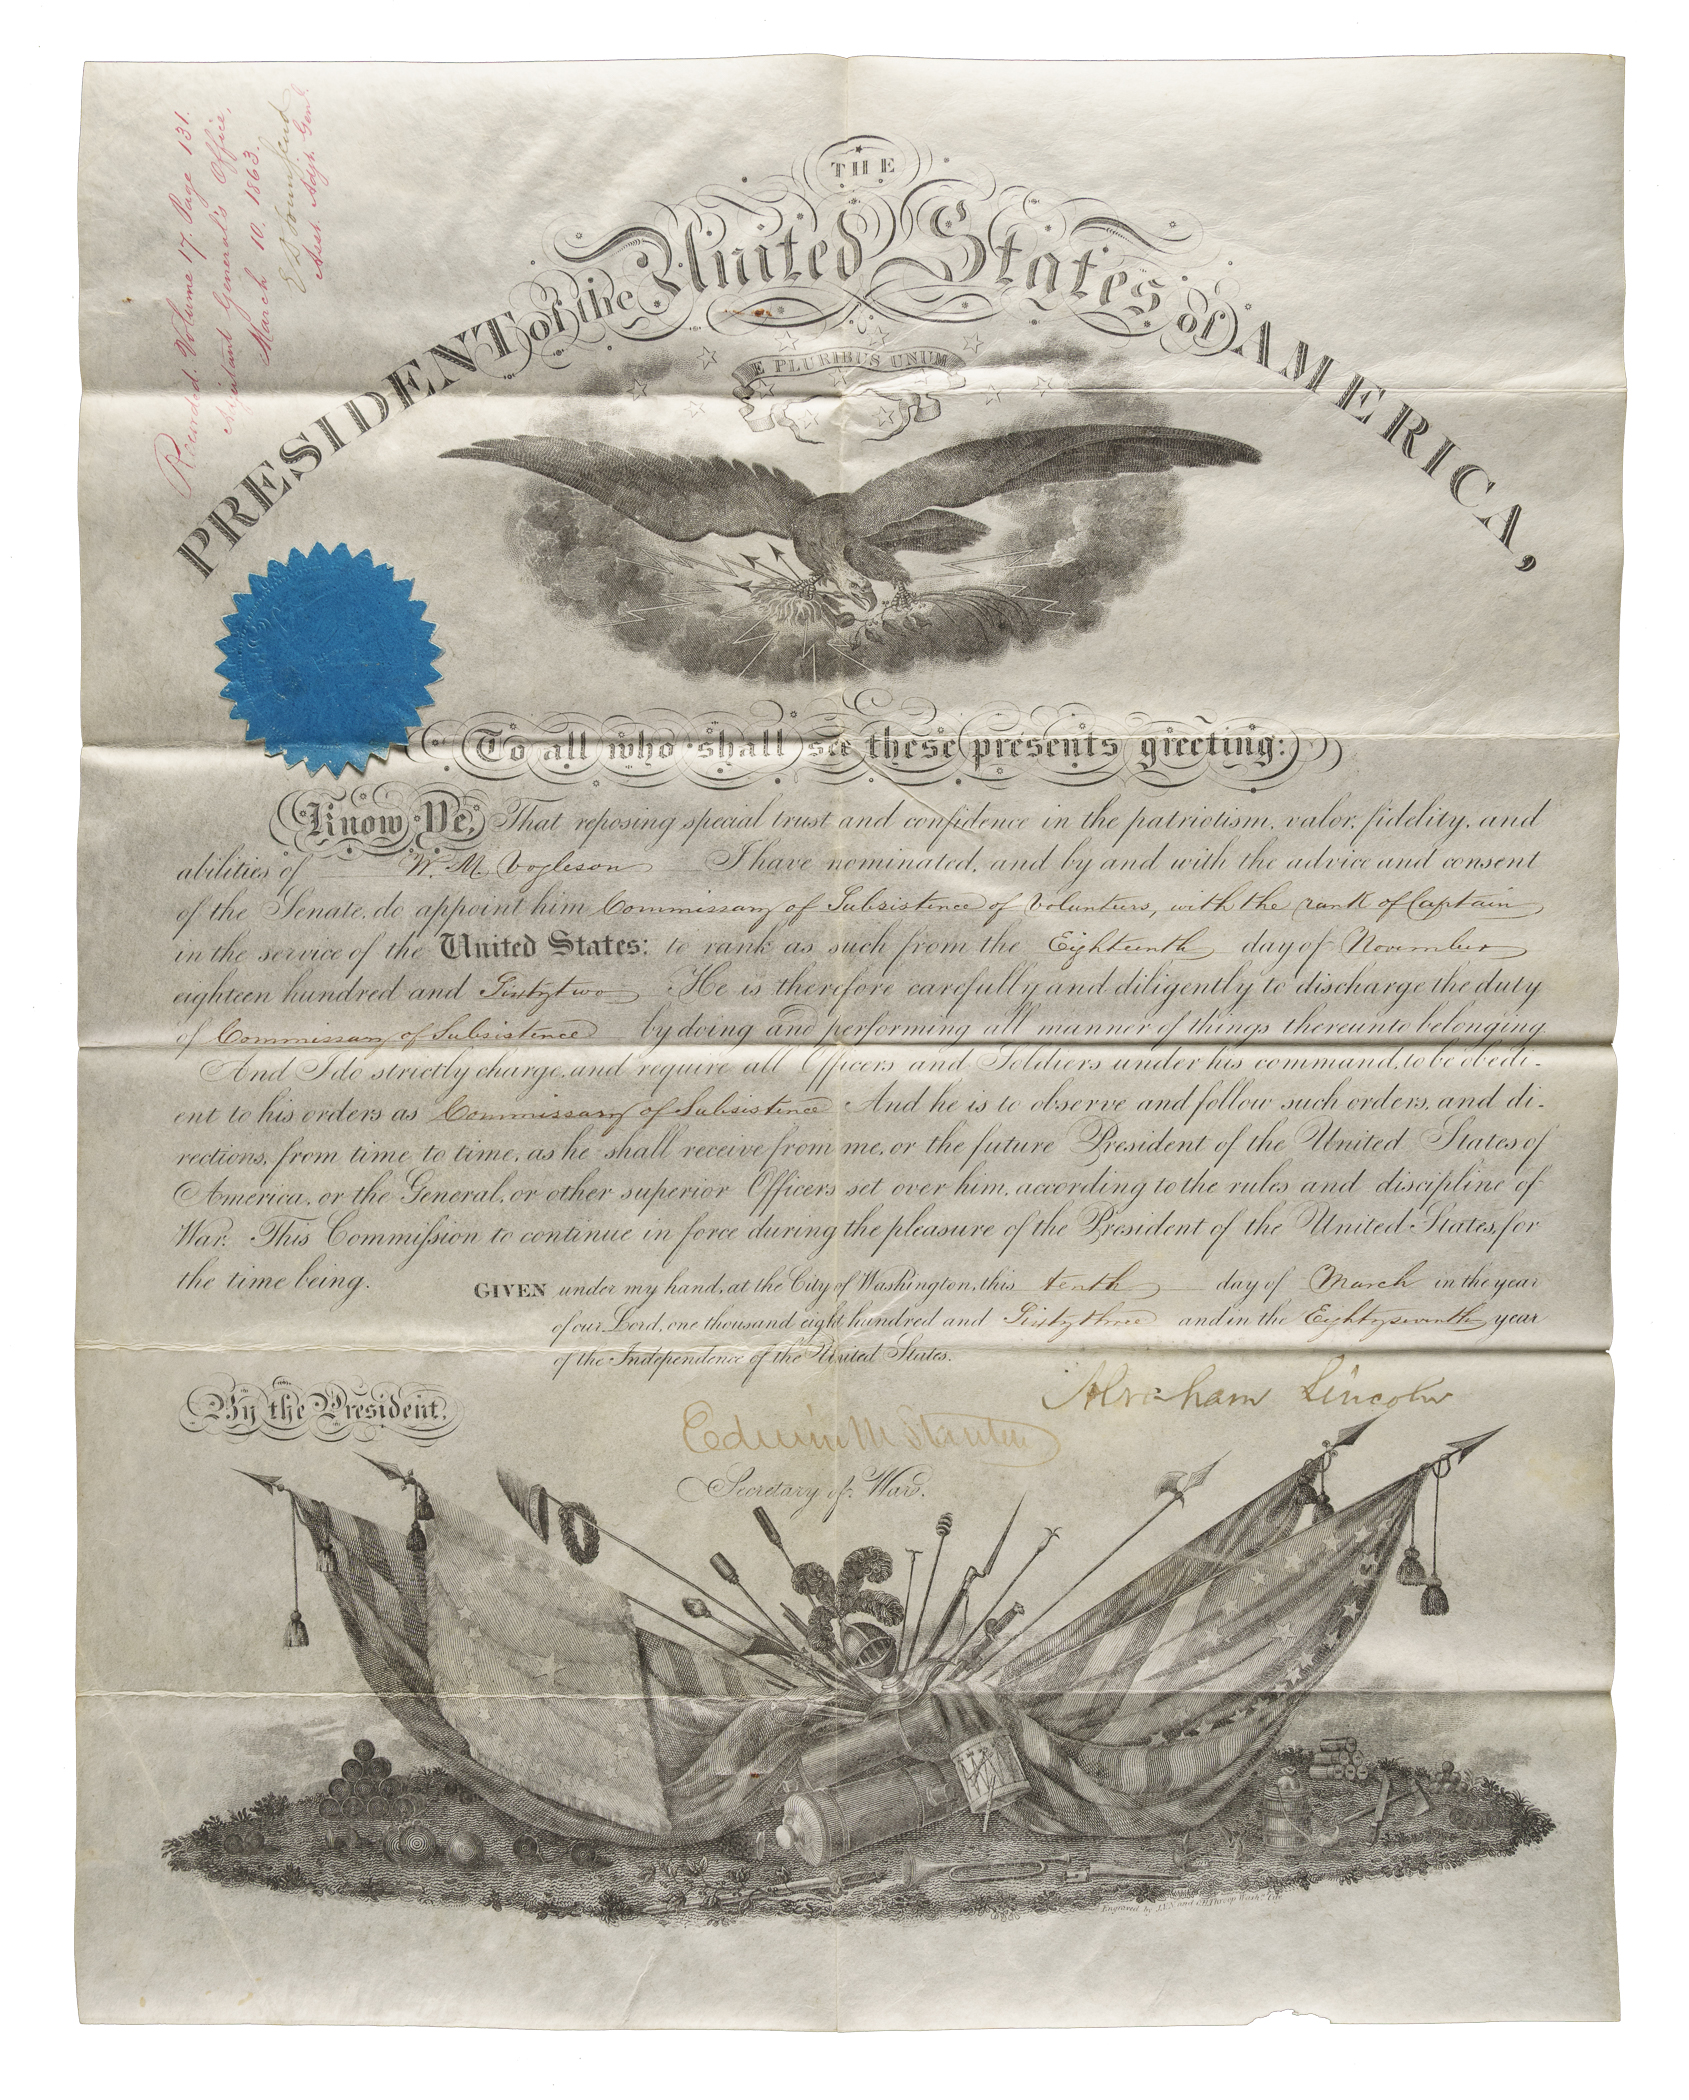 Recorded. Volume 17. Page 131.
Adjutant General's Office,
March 10. 1863.
E D Townsend
Asst. Adjt. Genl.
THE
PRESIDENT of the United States of AMERICA,
E PLURIBUS UNUM
To all who shall see these presents greeting:
Know Ye, That reposing special trust and confidence in the patriotism, valor, fidelity, and
abilities of W. M. Vogleson I have nominated, and by and with the advice and consent
of the Senate, do appoint him Commissary of Subsistence of Volunteers, with the rank of Captain
in the service of the United States: to rank as such from the Eighteenth day of November
eighteen hundred and Sixty two He is therefore carefully and diligently to discharge the duty
of Commissary of Subsistence by doing and performing all manner of things thereunto belonging.
And I do strictly charge, and require all Officers and Soldiers under his command, to be obedi-
ent to his orders as Commissary of Subsistence And he is to observe and follow such orders, and di-
rections, from time to time, as he shall receive from me, or the future President of the United States of
America, or the General, or other superior Officers set over him, according to the rules and discipline of
War. This Commission to continue in force during the pleasure of the President of the United States, for
the time being.
GIVEN under my hand, at the City of Washington, this tenth day of March in the year
of our Lord, one thousand eight hundred and Sixty three and in the Eighty seventh year
of the Independence of the United States.
Abraham Lincoln
By the President,
Edwin M Stanton
Secretary of War.
Engraved by J.V.N. and O.H. Throop Washn. City